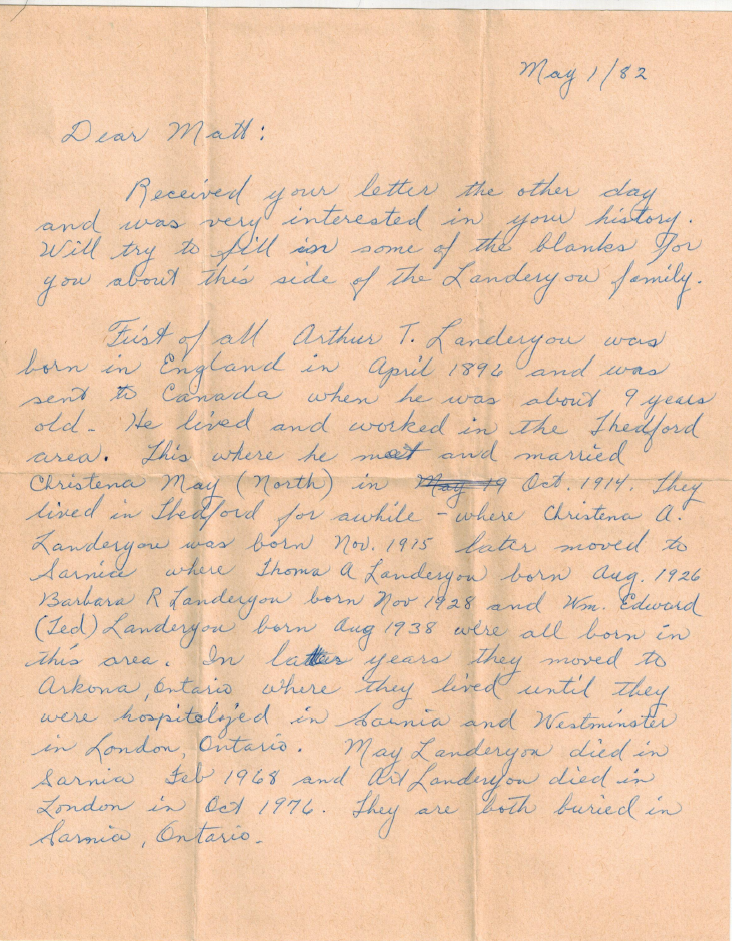 May 1/82
Dear Matt:
Received your letter the other day
and was very interested in your history.
Will try to fill in some of the blanks for
you about this side of the Landeryou family.
First of all Arthur T. Landeryou was
born in England in April 1896 and was
sent to Canada when he was about 9 years
old. He lived and worked in the Thedford
area. This where he met and married
Christena May (North) in May 19 Oct. 1914. They
lived in Thedford for awhile - where Christena A.
Landeryou was born Nov. 1915 later moved to
Sarnia where Thoma A Landeryou born Aug. 1926
Barbara R Landeryou born Nov 1928 and Wm. Edward
(Ted) Landeryou born Aug 1938 were all born in
this area. In latter years they moved to
Arkona, Ontario where they lived until they
were hospitalized in Sarnia and Westminster
in London, Ontario. May Landeryou died in
Sarnia Feb 1968 and Art Landeryou died in
London in Oct 1976. They are both buried in
Sarnia, Ontario.